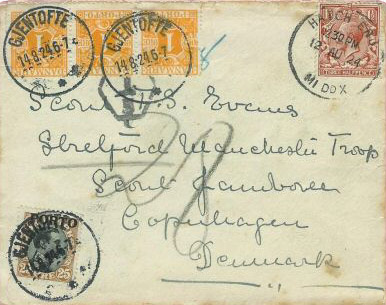 GJENTOFTE
14.8.24.6-7
GJENTOFTE
14.8.24.6-7
HATCH END
12.30 PM
12 AU 24
MIDDX
T
Scout H.S. Evans
Stretford Manchester Troop
Scout Jamboree
Copenhagen
Denmark
28
GJENTOFTE
25 ØRE 25